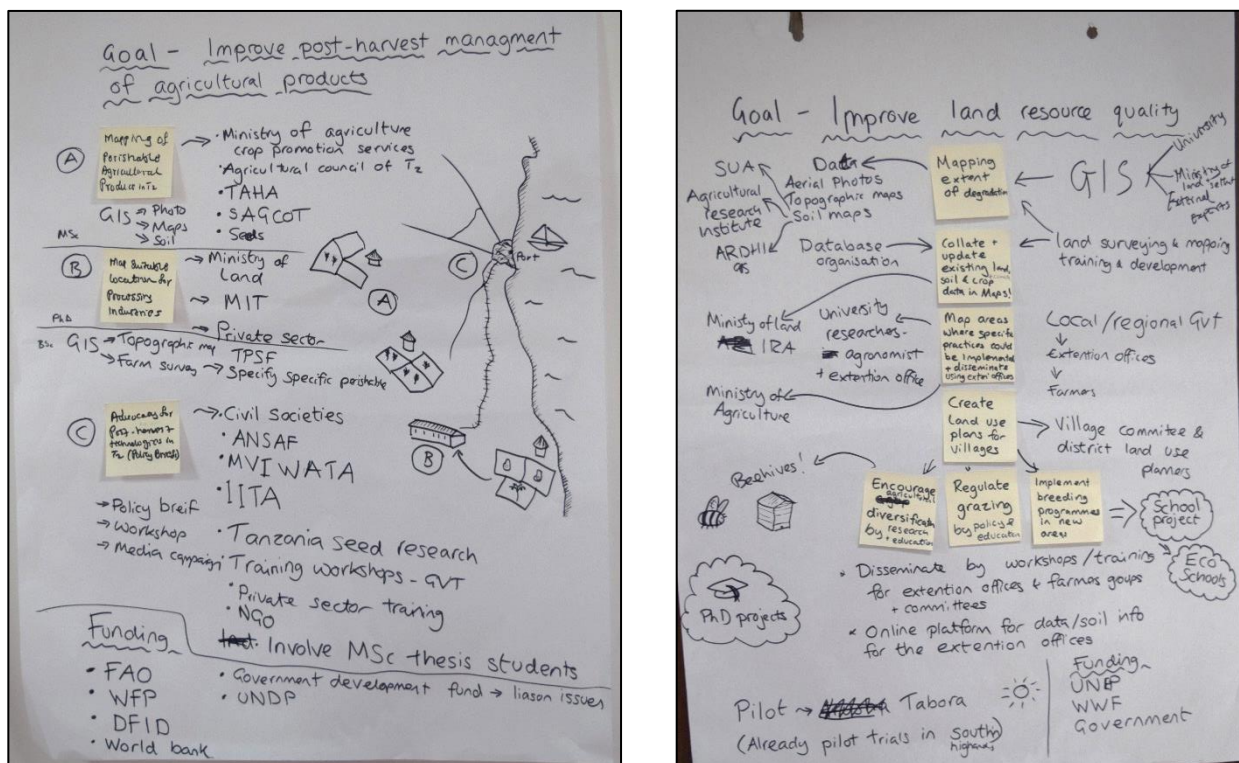 Goal - Improve post-harvest managment
of agricultural products
A
Mapping of
Perishable
Agricultural
Produce in TZ
• Ministry of agriculture
crop promotion services
• Agricultural council of TZ
• TAHA
• SAGCOT
• Seeds
GIS → Photo
→ Maps
→ Soil
MSc
B
Map Suitable
Location for
Processing
Industries
→ Ministry of
Land
→ MIT
PhD
→ Private sector
TPSF
BSc
GIS → Topographic map
→ Farm survey → Specify specific perishable
C
Advocacy for
Post-harvest
technologies in
TZ (Policy Briefs)
• Civil societies
• ANSAF
• MVIWATA
• IITA
→ Policy breif
→ Workshop
→ Media campaign
• Tanzania seed research
• Training workshops - GVT
• Private sector training
• NGO
Involve MSc thesis students
Funding
• FAO
• WFP
• DFID
• World bank
• Government development fund → liason issues
• UNDP
C
Port
A
B
Goal - Improve land resource quality
SUA
Agricultural
research
institute
ARDHI
Data
Aerial Photos
Topographic maps
Soil maps
Mapping
extent
of degradation
GIS
University
Ministry of
land
External
experts
Database
organisation
Collate +
update
existing land,
soil & crop
data in Maps!
land surveying & mapping
training & development
Ministry of land
IRA
University
researchers -
agronomist
+ extention office
Map areas
where specific
practices could
be implemented
+ disseminate
using extention offices
Local/regional GVT
Extention offices
Farmers
Ministry of
Agriculture
Create
land use
plans for
villages
Village commitee &
district land use
planners
Beehives!
Encourage
agricultural
diversification
by research
+ education
Regulate
grazing
by policy &
education
Implement
breeding
programmes
in new
areas
School
project
Eco
Schools
PhD projects
* Disseminate by workshops/training
for extention offices & farmes goups
+ committees
* Online platform for data/soil info
for the extention offices
Pilot → Tabora
(Already pilot trials in south
highlands)
Funding
UNEP
WWF
Government